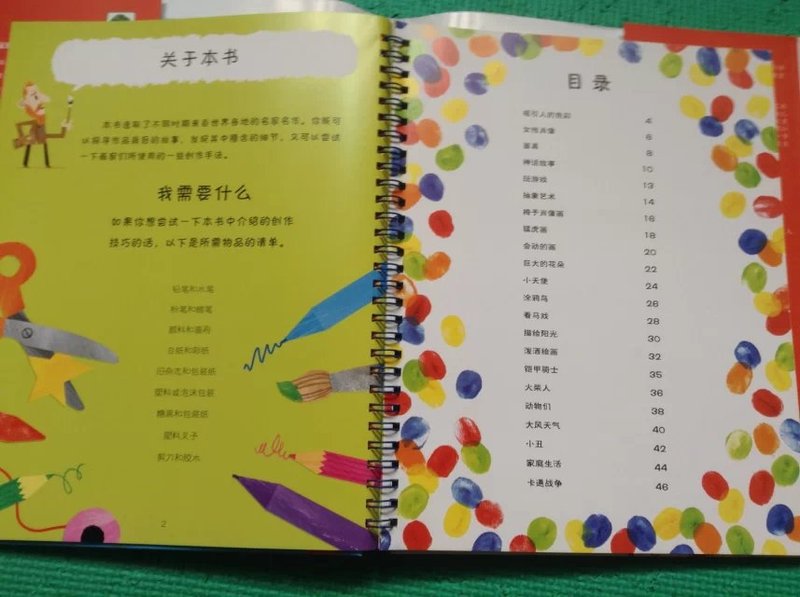 关于本书
本书选取了不同时期来自世界各地的名家名作。你既可
以探寻作品背后的故事，发现其中隐含的细节，又可以尝试
一下画家们所使用的一些创作手法。
我需要什么
如果你想尝试一下本书中介绍的创作
技巧的话，以下是所需物品的清单。
铅笔和水笔
粉笔和蜡笔
颜料和画刷
白纸和彩纸
旧杂志和包装纸
塑料或泡沫包装
糖果和包装纸
塑料叉子
剪刀和胶水
2
目录
吸引人的色彩 4
女性肖像 6
面具 8
神话故事 10
玩游戏 13
抽象艺术 14
椅子肖像画 16
猛虎画 18
会动的画 20
巨大的花朵 22
小天使 24
涂鸦鸟 26
看马戏 28
描绘阳光 30
泼洒绘画 32
铠甲骑士 35
火柴人 36
动物们 38
大风天气 40
小丑 42
家庭生活 44
卡通战争 46